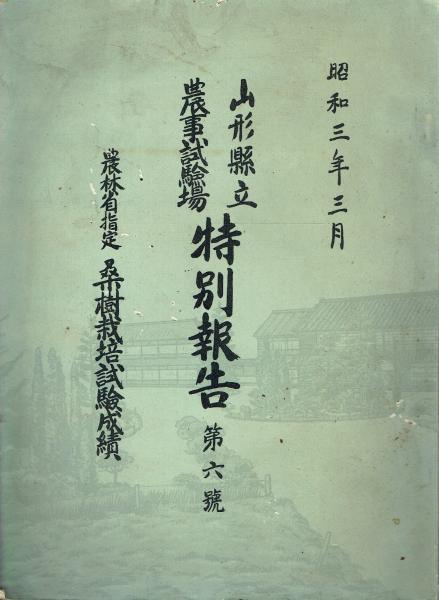 昭和三年三月
山形縣立
農事試驗場
特別報告 第六號
農林省指定 桑樹栽培試驗成績